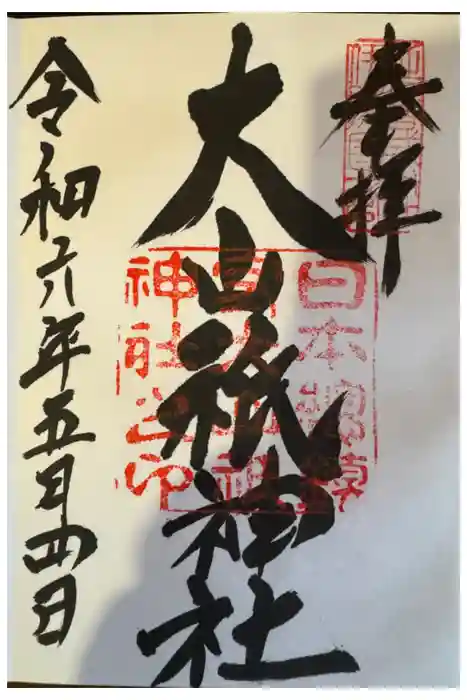 奉拝
大山祇神社
令和六年五月四日
日本總鎮
神社之印